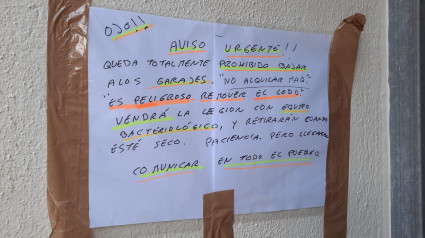 OJO!!
AVISO URGENTE!!
QUEDA TOTALMENTE PROHIBIDO BAJAR
A LOS GARAJES. "NO ALQUILAR MAQ."
"ES PELIGROSO REMOVER EL LODO"
VENDRÁ LA LEGION CON EQUIPO
BACTERIOLÓGICO, Y RETIRARÁN CUANDO
ESTÉ SECO. PACIENCIA. PERO LLEGARÁN
COMUNICAR EN TODO EL PUEBLO